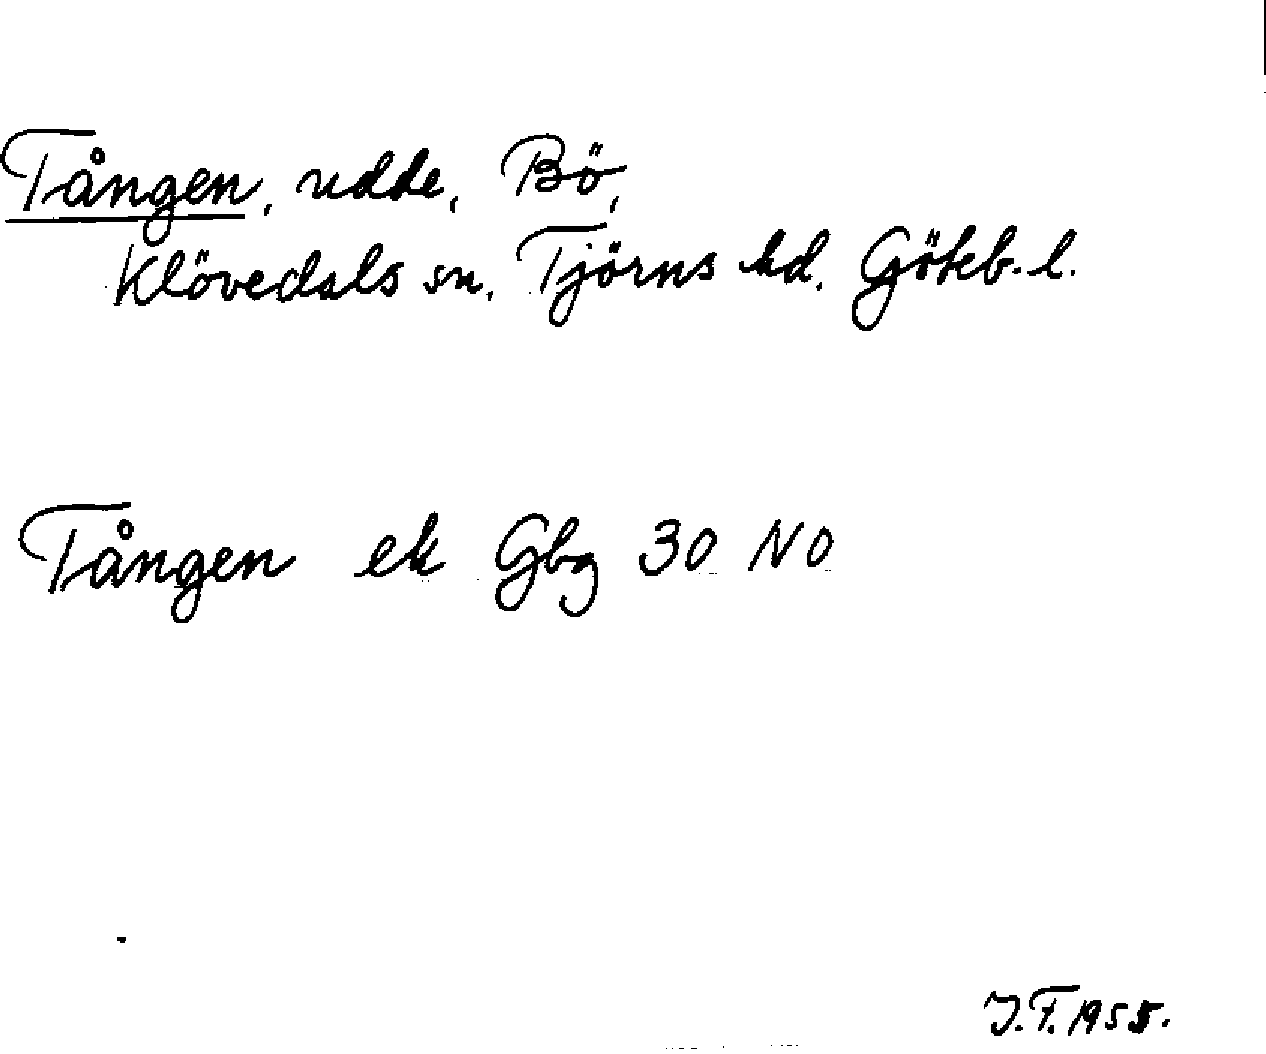 Tången, udde, Bö,
Klövedals sn, Tjörns hd, Göteb. l.
Tången ek Gbg 30 NO
J.F. 1955.